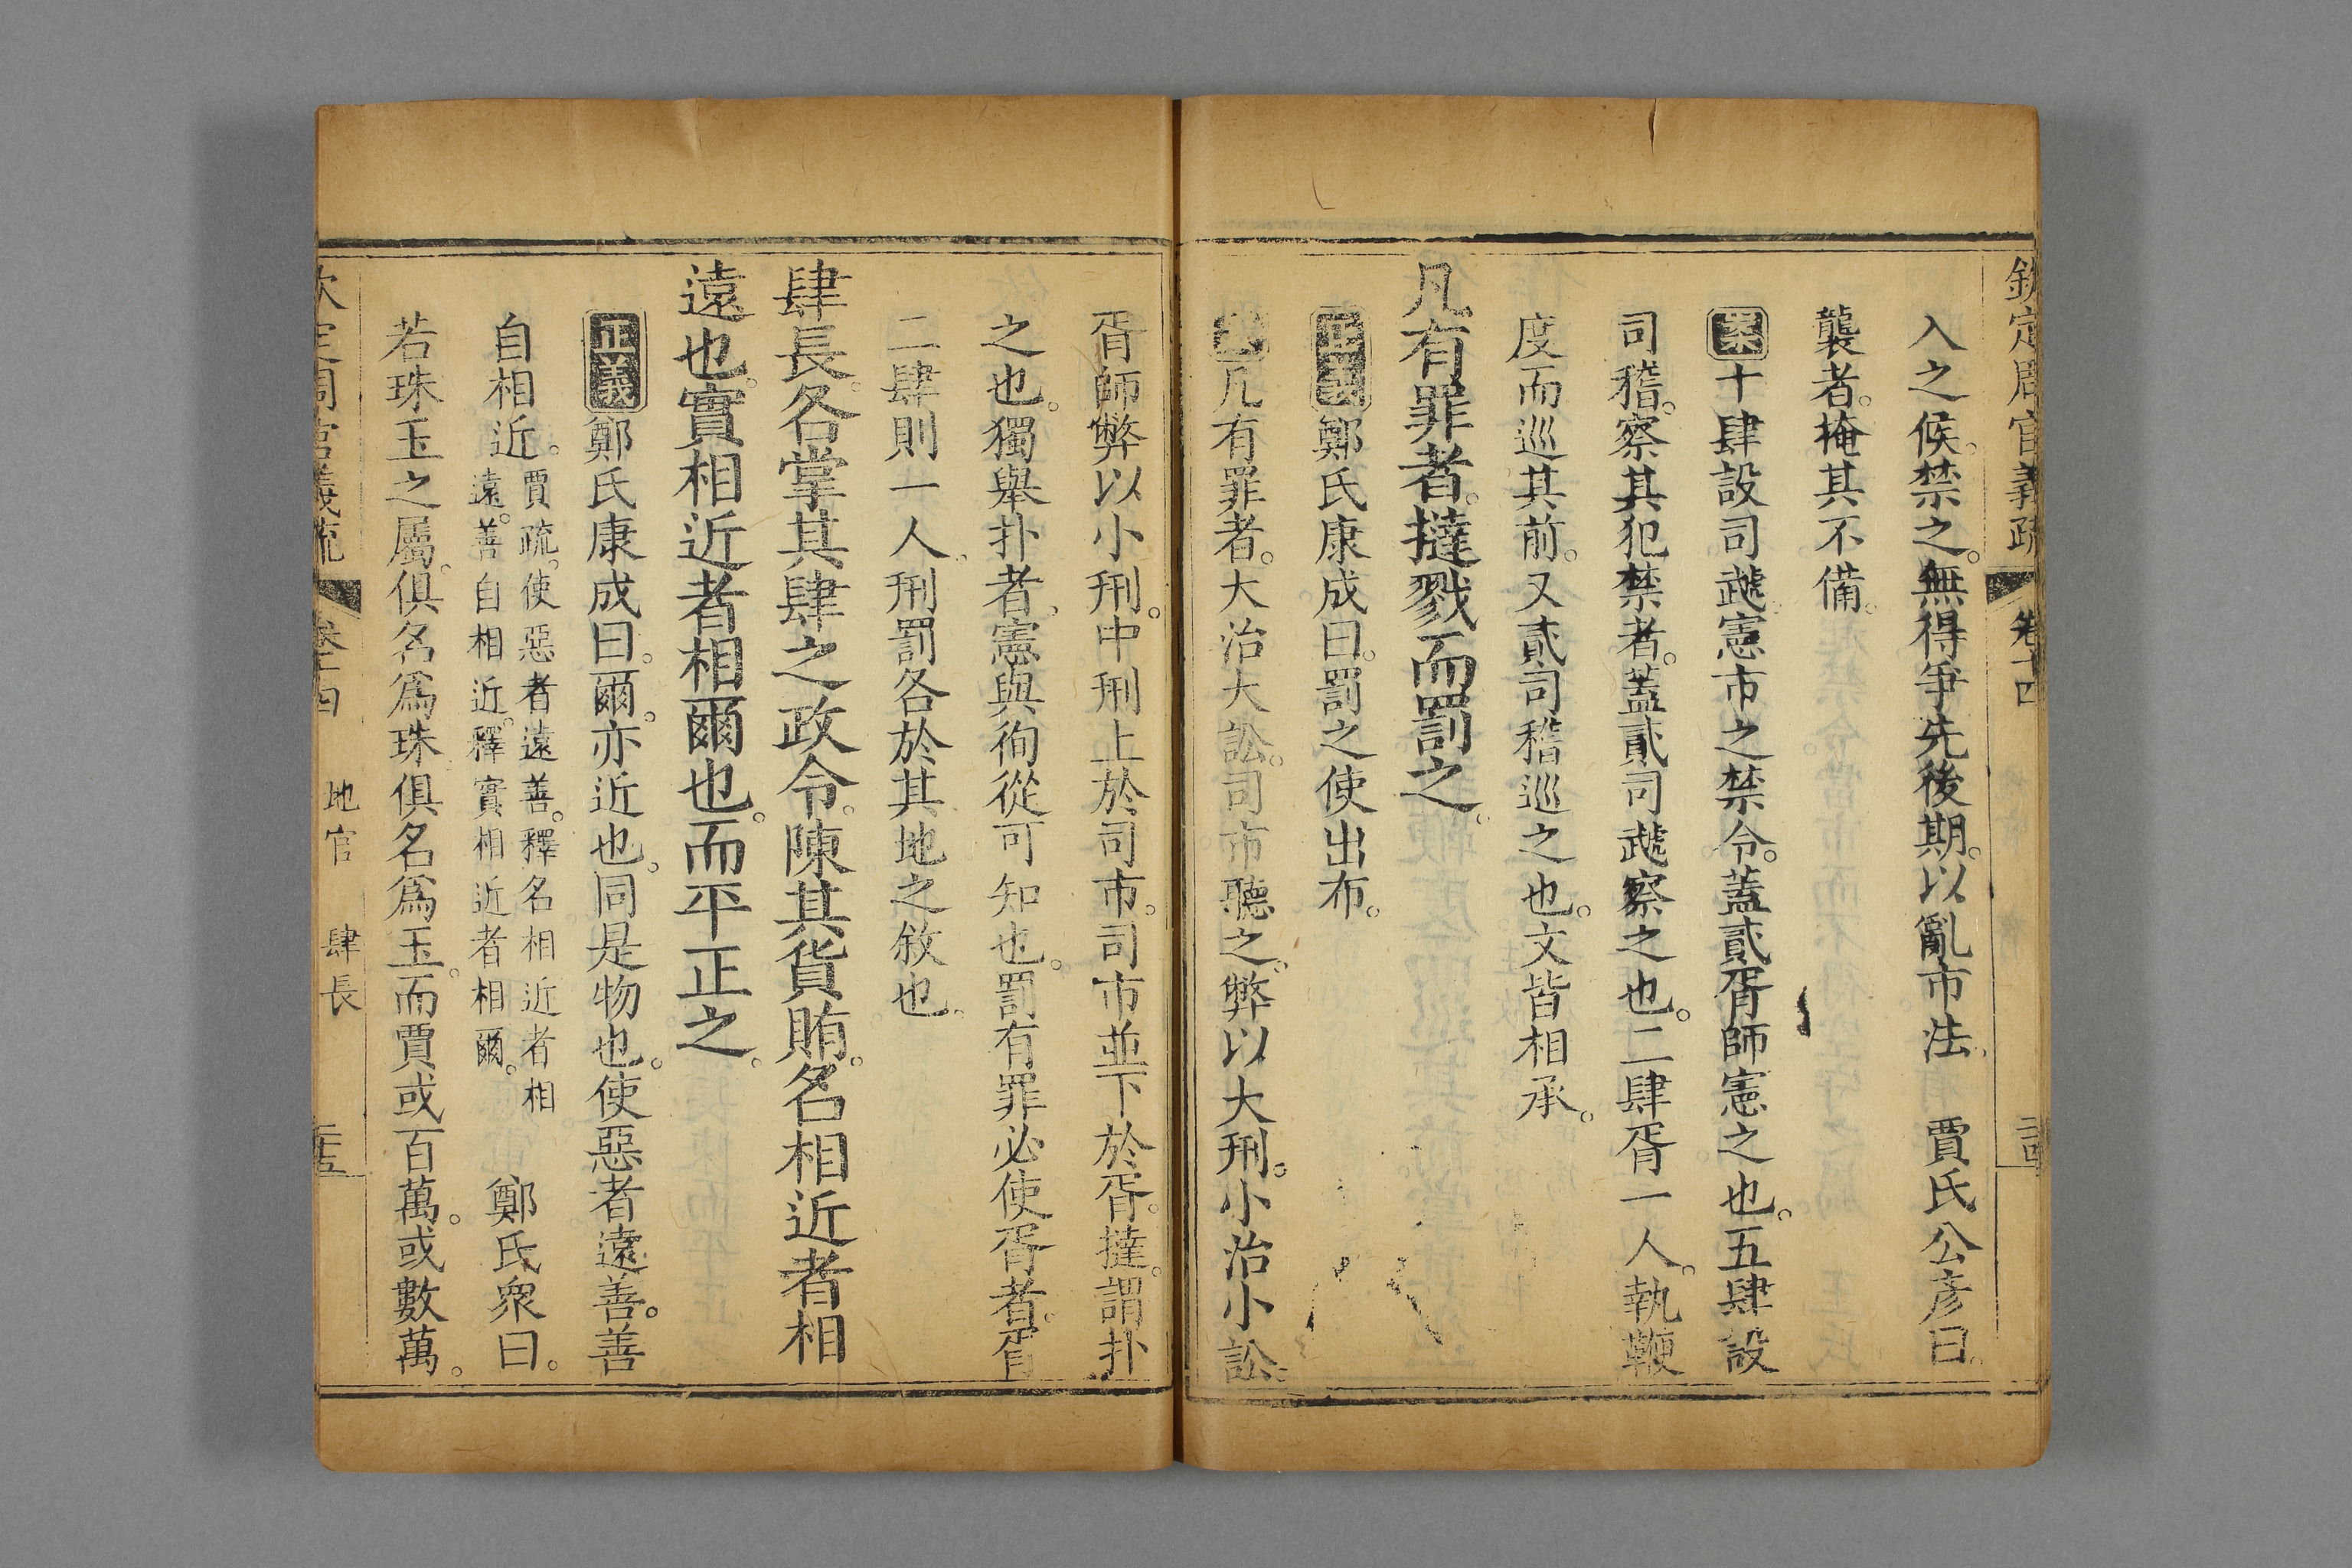 欽定周官義疏 卷十四 二四
入之候禁之。無得爭先後期。以亂市法。 賈氏公彥曰。
襲者。掩其不備。
案十肆設司虣。憲市之禁令。蓋貳胥師憲之也。五肆設
司稽。察其犯禁者。蓋貳司虣察之也。二肆胥一人。執鞭
度而巡其前。又貳司稽巡之也。文皆相承。
凡有罪者。撻戮而罰之。
正義鄭氏康成曰。罰之使出布。
凡有罪者。大治大訟。司市聽之。弊以大刑。小治小訟。
胥師弊以小刑。中刑上於司市。司市並下於胥。撻謂扑
之也。獨舉扑者。憲與徇從可知也。罰有罪必使胥者。胥
二肆則一人。刑罰各於其地之敘也。
肆長。各掌其肆之政令。陳其貨賄。名相近者相
遠也。實相近者相爾也。而平正之。
正義鄭氏康成曰。爾。亦近也。同是物也。使惡者遠善。善
自相近。賈疏。使惡者遠善。釋名相近者相遠。善自相近。釋實相近者相爾。 鄭氏衆曰。
若珠玉之屬。俱名爲珠。俱名爲玉。而賈或百萬。或數萬。
欽定周官義疏 卷十四 地官 肆長 二五